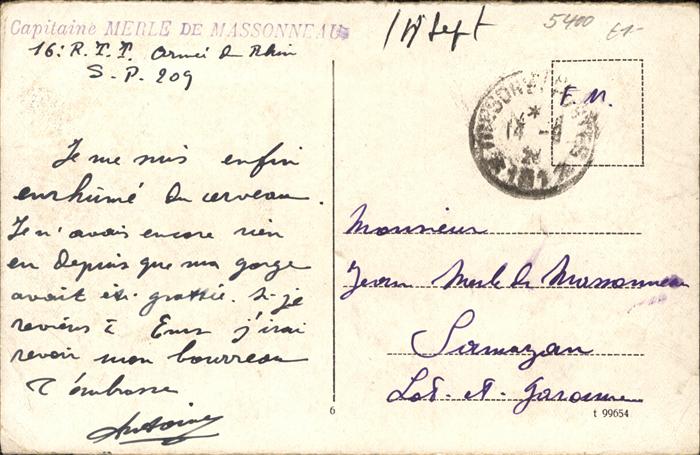 Capitaine MERLE DE MASSONNEAU
16: R.T.T. Armée du Rhin
S.P. 209
14 Sept
5400
£1-
F. M.
TRESOR ET POSTES
*
14 - 9
Je me suis enfin
enrhumé du cerveau.
Je n'avais encore rien
eu depuis que ma gorge
avait été grattée. Si je
reviens à Ems j'irai
revoir mon bourreau
T'embrasse
Antoine
Monsieur
Jean Merle de Massonneau
Samazan
Lot-et-Garonne
6
t 99654